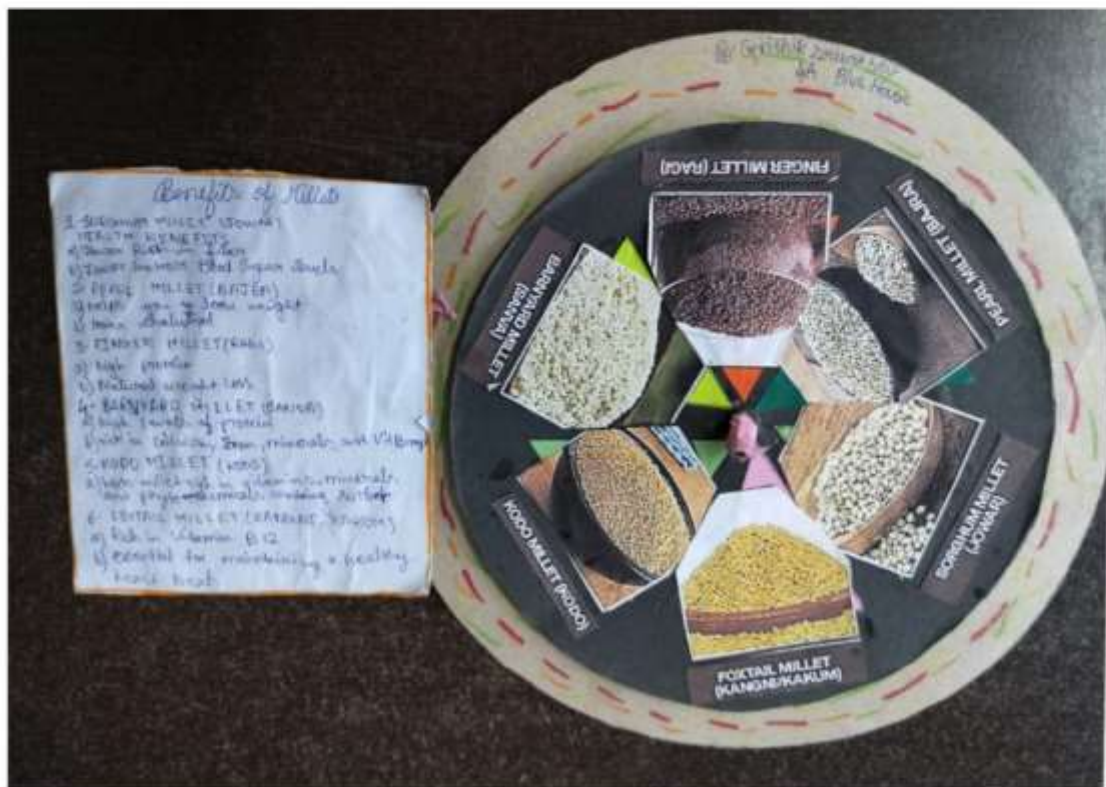 Benefits of Millets
1- SORGHUM MILLET (JOWAR)
HEALTH BENEFITS
a) Jowar Rich in fiber
b) Jowar Blood Sugar levels
2- PEARL MILLET (BAJRA)
a) helps you in loose weight
b)
3- FINGER MILLET (RAGI)
a) high protein
b) Natural weight loss
4- BARNYARD MILLET
a) high levels of protein
b) rich in calcium, Iron, minerals and Vit B
5- KODO MILLET (KODO)
a) Kodo millet rich in minerals
and
6- MILLET
a) Rich in vitamin B12
b) essential for maintaining a healthy
4A Blue House
FINGER MILLET (RAGI)
PEARL MILLET (BAJRA)
SORGHUM MILLET
(JOWAR)
FOXTAIL MILLET
(KANGNI/KAKUM)
KODO MILLET (KODO)
BARNYARD MILLET
(SANVA)